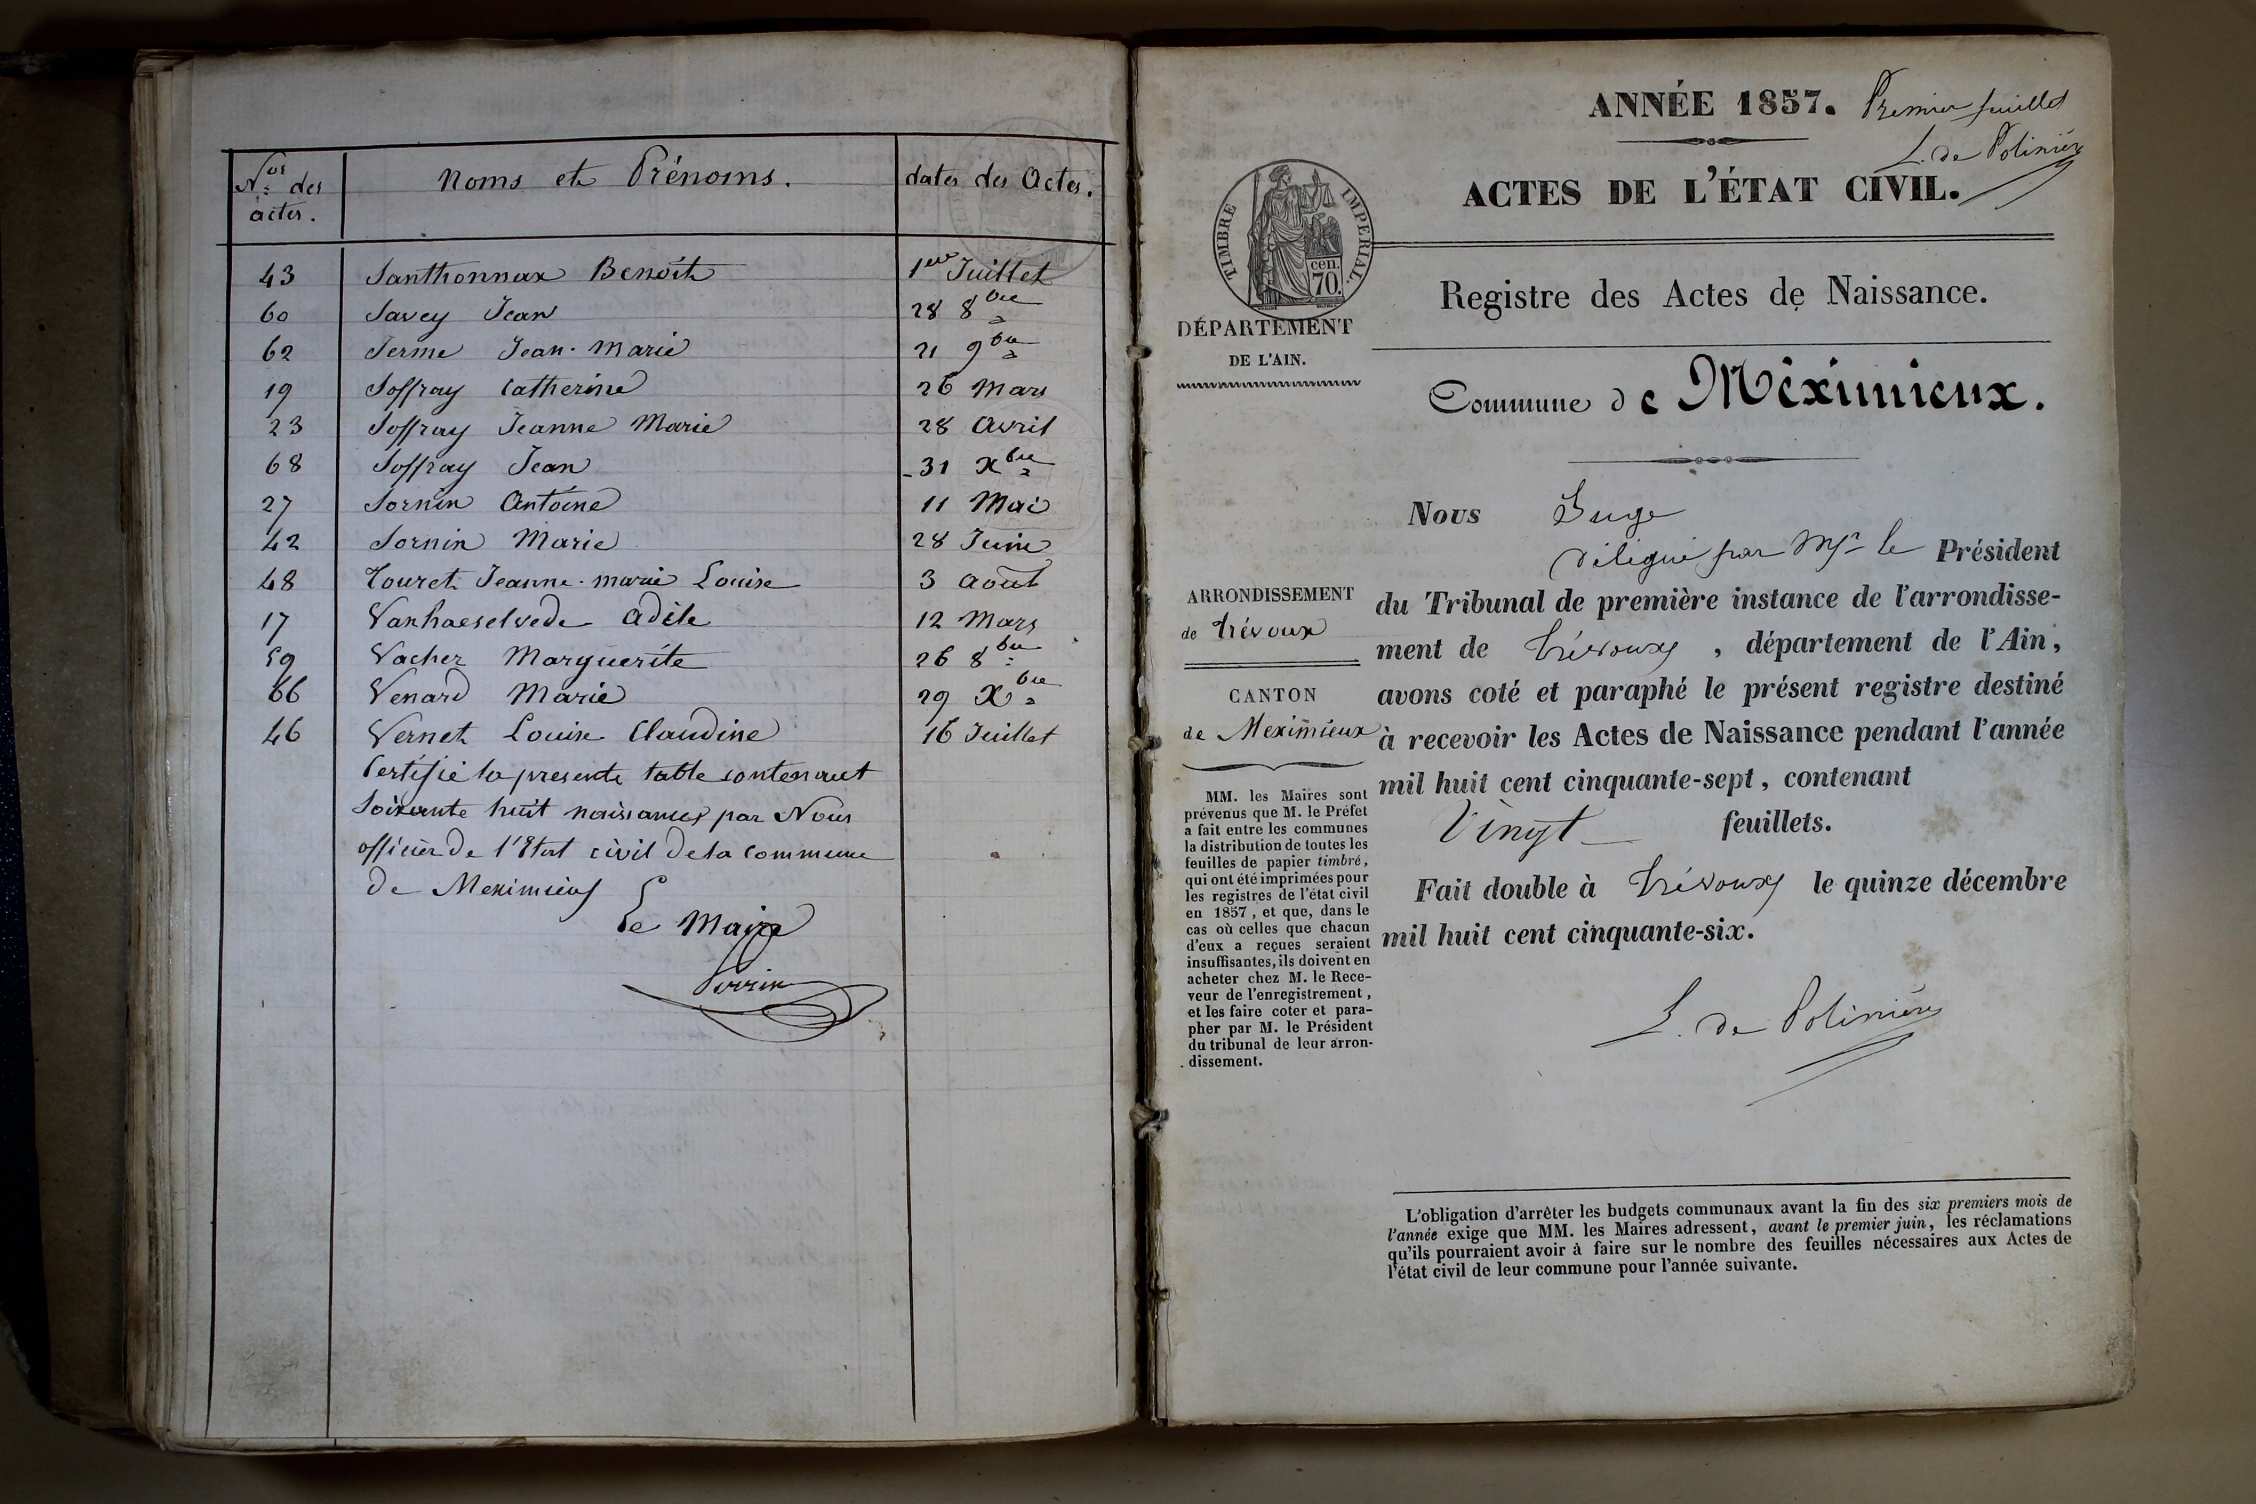 Nos des actes.
Noms et Prénoms.
dates des Actes.
43 Santhonnax Benoît 1er Juillet
60 Savey Jean 28 8bre
62 Serme Jean-Marie 21 9bre
19 Soffray Catherine 26 Mars
23 Soffray Jeanne Marie 28 Avril
68 Soffray Jean 31 Xbre
27 Sornin Antoine 11 Mai
42 Sornin Marie 28 Juin
48 Touret Jeanne-marie Louise 3 Août
17 Vanhaeselvede Adèle 12 Mars
59 Vacher Marguerite 26 8bre
66 Venard Marie 29 Xbre
46 Vernet Louise Claudine 16 Juillet
Certifié la presente table contenant
Soixante huit naissances par Nous
officier de l'Etat civil de la commune
de Meximieux
Le Maire
ANNÉE 1857.
Premier feuillet
L. de Polinière
ACTES DE L'ÉTAT CIVIL.
TIMBRE IMPERIAL.
cen. 70.
DÉPARTEMENT
DE L'AIN.
Registre des Actes de Naissance.
Commune de Méximieux.
Nous Juge
délégué par Mr le Président
du Tribunal de première instance de l'arrondisse-
ment de Trévoux, département de l'Ain,
avons coté et paraphé le présent registre destiné
à recevoir les Actes de Naissance pendant l'année
mil huit cent cinquante-sept, contenant
Vingt feuillets.
Fait double à Trévoux le quinze décembre
mil huit cent cinquante-six.
L. de Polinière
ARRONDISSEMENT
de Trévoux
CANTON
de Meximieux
MM. les Maires sont
prévenus que M. le Préfet
a fait entre les communes
la distribution de toutes les
feuilles de papier timbré,
qui ont été imprimées pour
les registres de l'état civil
en 1857, et que, dans le
cas où celles que chacun
d'eux a reçues seraient
insuffisantes, ils doivent en
acheter chez M. le Rece-
veur de l'enregistrement,
et les faire coter et para-
pher par M. le Président
du tribunal de leur arron-
dissement.
L'obligation d'arrêter les budgets communaux avant la fin des six premiers mois de
l'année exige que MM. les Maires adressent, avant le premier juin, les réclamations
qu'ils pourraient avoir à faire sur le nombre des feuilles nécessaires aux Actes de
l'état civil de leur commune pour l'année suivante.